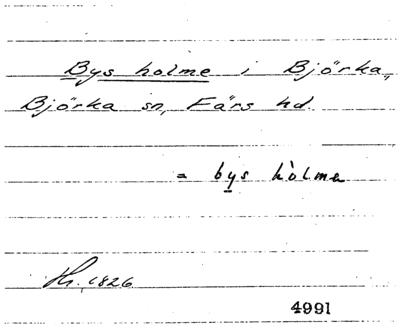 Bys holme i Björka,
Björka sn, Färs hd.
= bys hòlma
Hr. 1826
4991